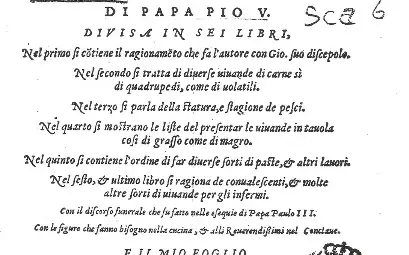 DI PAPA PIO V.
Sca 6
DIVISA IN SEI LIBRI,
Nel primo si cõtiene il ragionamẽto che fa l'autore con Gio. suo discepolo.
Nel secondo si tratta di diuerse uiuande di carne sì
di quadrupedi, come di uolatili.
Nel terzo si parla della statura, e stagione de pesci.
Nel quarto si mostrano le liste del presentar le uiuande in tauola
così di grasso come di magro.
Nel quinto si contiene l'ordine di far diuerse sorti di paste, & altri lauori.
Nel sesto, & ultimo libro si ragiona de conualescenti, & molte
altre sorti di uiuande per gli infermi.
Con il discorso funerale che fu fatto nelle esequie di Papa Paulo III.
Con le figure che fanno bisogno nella cucina, & alli Reuerendissimi nel Conclaue.
E IL MIO FOGLIO